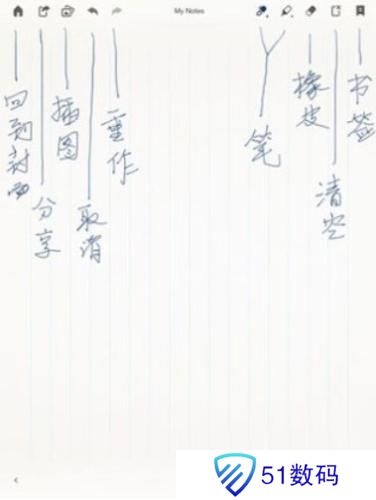 My Notes
回到封面
分享
插图
取消
重作
笔
橡皮
清空
书签
51数码